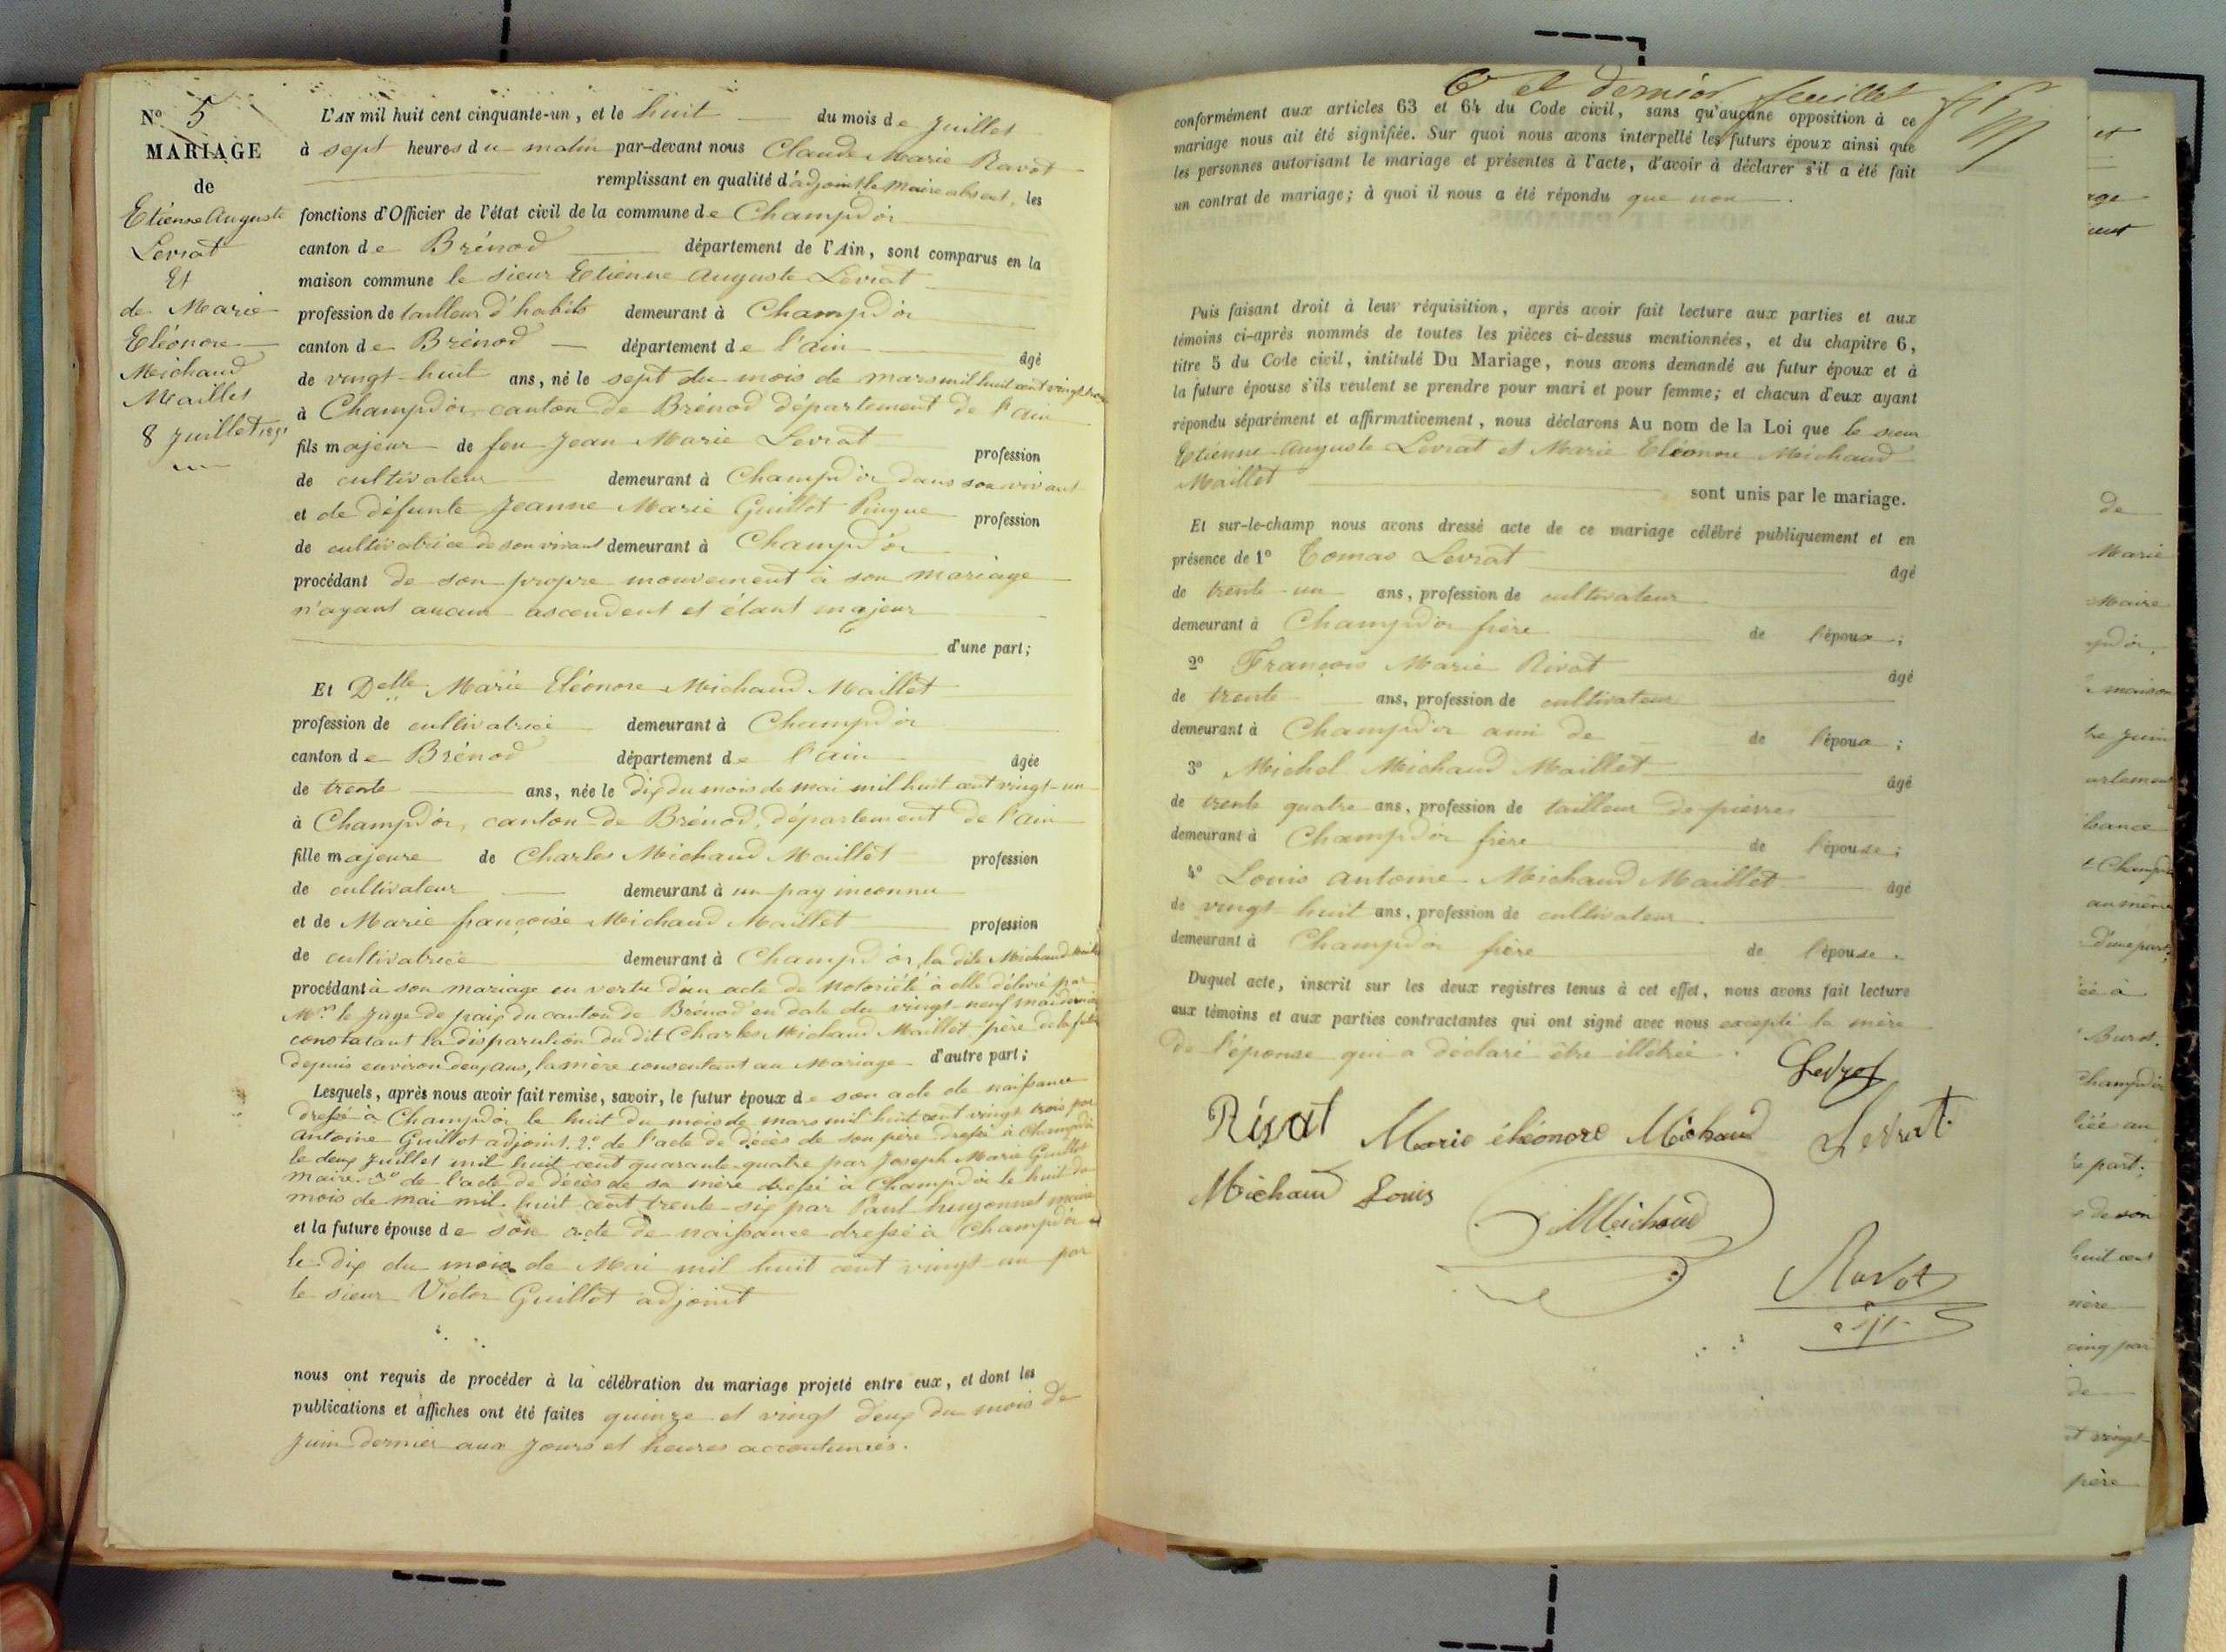 N° 5
MARIAGE
de
Etienne Auguste
Levrat
Et
de Marie
Eléonore
Michaud
Maillet
8 Juillet 1851
L'AN mil huit cent cinquante-un, et le huit du mois de Juillet
à sept heures du matin par-devant nous Claude Marie Ravot
remplissant en qualité d'adjoint le Maire absent, les
fonctions d'Officier de l'état civil de la commune de Champdor
canton de Brénod département de l'Ain, sont comparus en la
maison commune le sieur Etienne Auguste Levrat
profession de tailleur d'habits demeurant à Champdor
canton de Brénod département de l'ain âgé
de vingt-huit ans, né le sept du mois de mars mil huit cent vingt trois
à Champdor, canton de Brénod département de l'ain
fils majeur de feu Jean Marie Levrat profession
de cultivateur demeurant à Champdor dans son vivant
et de défunte Jeanne Marie Guillot Pingue profession
de cultivatrice de son vivant demeurant à Champdor
procédant de son propre mouvement à son mariage
n'ayant aucun ascendent et étant majeur
d'une part;
Et Delle Marie Eléonore Michaud Maillet
profession de cultivatrice demeurant à Champdor
canton de Brénod département de l'ain âgée
de trente ans, née le dix du mois de mai mil huit cent vingt-un
à Champdor, canton de Brénod, département de l'ain
fille majeure de Charles Michaud Maillet profession
de cultivateur demeurant à un pay inconnu
et de Marie françoise Michaud Maillet profession
de cultivatrice demeurant à Champdor, la dite Michaud Maillet
procédant à son mariage en vertu d'un acte de Notoriété à elle délivré par
Mr. le Juge de paix du canton de Brénod en date du vingt-neuf mai dernier
constatant la disparution du dit Charles Michaud Maillet père de la future
depuis environ deux ans, la mère consentant au Mariage d'autre part;
Lesquels, après nous avoir fait remise, savoir, le futur époux de son acte de naissance
dressé à Champdor le huit du mois de mars mil huit cent vingt trois par
Antoine Guillot adjoint. 2° de l'acte de décès de son père dressé à Champdor
le deux Juillet mil huit cent quarante-quatre par Joseph Marie Guillot
Maire. 3° de l'acte de décès de sa mère dressé à Champdor le huit du
mois de mai mil huit cent trente-six par Paul huyonnet maire
et la future épouse de son acte de naissance dressé à Champdor
le dix du mois de Mai mil huit cent vingt-un par
le sieur Victor Guillot adjoint
nous ont requis de procéder à la célébration du mariage projeté entre eux, et dont les
publications et affiches ont été faites quinze et vingt deux du mois de
Juin dernier aux Jours et heures accoutumés.
6e et dernier feuillet
conformément aux articles 63 et 64 du Code civil, sans qu'aucune opposition à ce
mariage nous ait été signifiée. Sur quoi nous avons interpellé les futurs époux ainsi que
les personnes autorisant le mariage et présentes à l'acte, d'avoir à déclarer s'il a été fait
un contrat de mariage; à quoi il nous a été répondu que non.
Puis faisant droit à leur réquisition, après avoir fait lecture aux parties et aux
témoins ci-après nommés de toutes les pièces ci-dessus mentionnées, et du chapitre 6,
titre 5 du Code civil, intitulé Du Mariage, nous avons demandé au futur époux et à
la future épouse s'ils veulent se prendre pour mari et pour femme; et chacun d'eux ayant
répondu séparément et affirmativement, nous déclarons Au nom de la Loi que le sieur
Etienne Auguste Levrat et Marie Eléonore Michaud
Maillet sont unis par le mariage.
Et sur-le-champ nous avons dressé acte de ce mariage célébré publiquement et en
présence de 1° Tomas Levrat âgé
de trente-un ans, profession de cultivateur
demeurant à Champdor frère de l'époux;
2° François Marie Rivat âgé
de trente ans, profession de cultivateur
demeurant à Champdor ami de de l'époux;
3° Michel Michaud Maillet âgé
de trente quatre ans, profession de tailleur de pierres
demeurant à Champdor frère de l'épouse;
4° Louis Antoine Michaud Maillet âgé
de vingt-huit ans, profession de cultivateur
demeurant à Champdor frère de l'épouse.
Duquel acte, inscrit sur les deux registres tenus à cet effet, nous avons fait lecture
aux témoins et aux parties contractantes qui ont signé avec nous excepté la mère
de l'épouse qui a déclaré être illétrée.
Levrat
Rivat Marie éléonore Michaud Levrat
Michaud Louis
Michaud
Ravot
adjt.
et
de
Marie
Maire
maison
Juin
Champdor
d'une part;
Burot.
Champdor
part;
de son
huit cent
mère
cinq par
de
et vingt
père